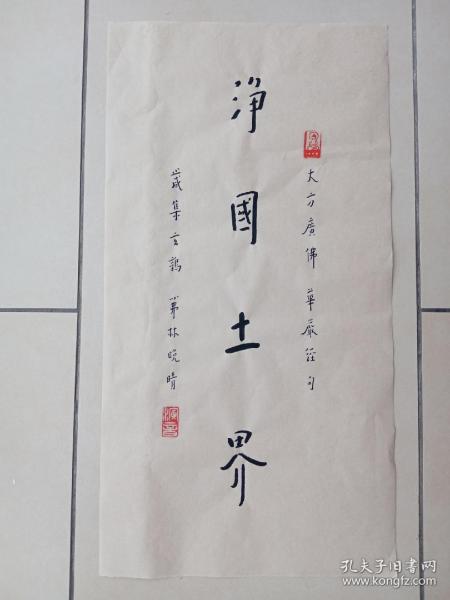 大方廣佛華嚴經句
淨國土界
歲集玄鶉
林晚晴
孔夫子旧书网
www.kongfz.com